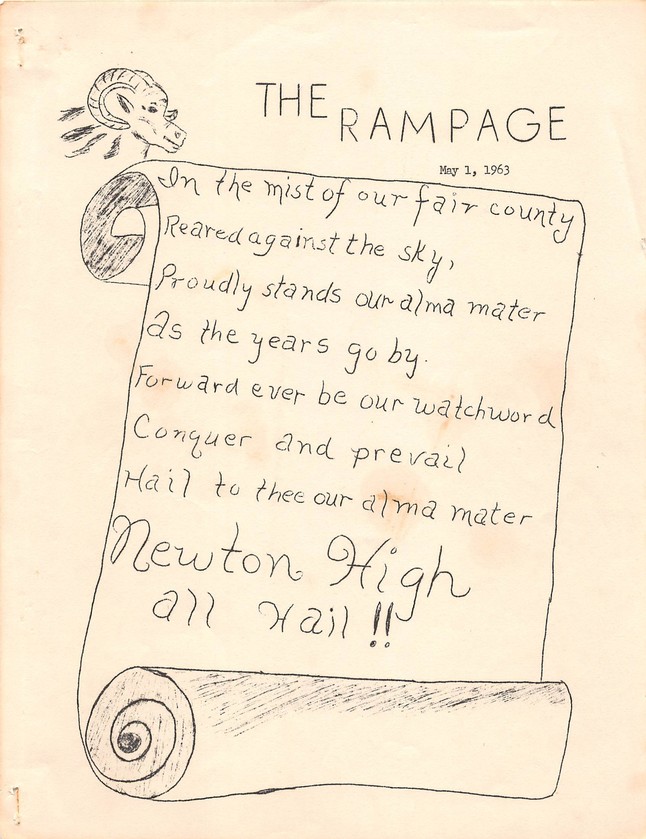 THE RAMPAGE
May 1, 1963
In the mist of our fair county
Reared against the sky,
Proudly stands our alma mater
As the years go by.
Forward ever be our watchword
Conquer and prevail
Hail to thee our alma mater
Newton High
all Hail!!